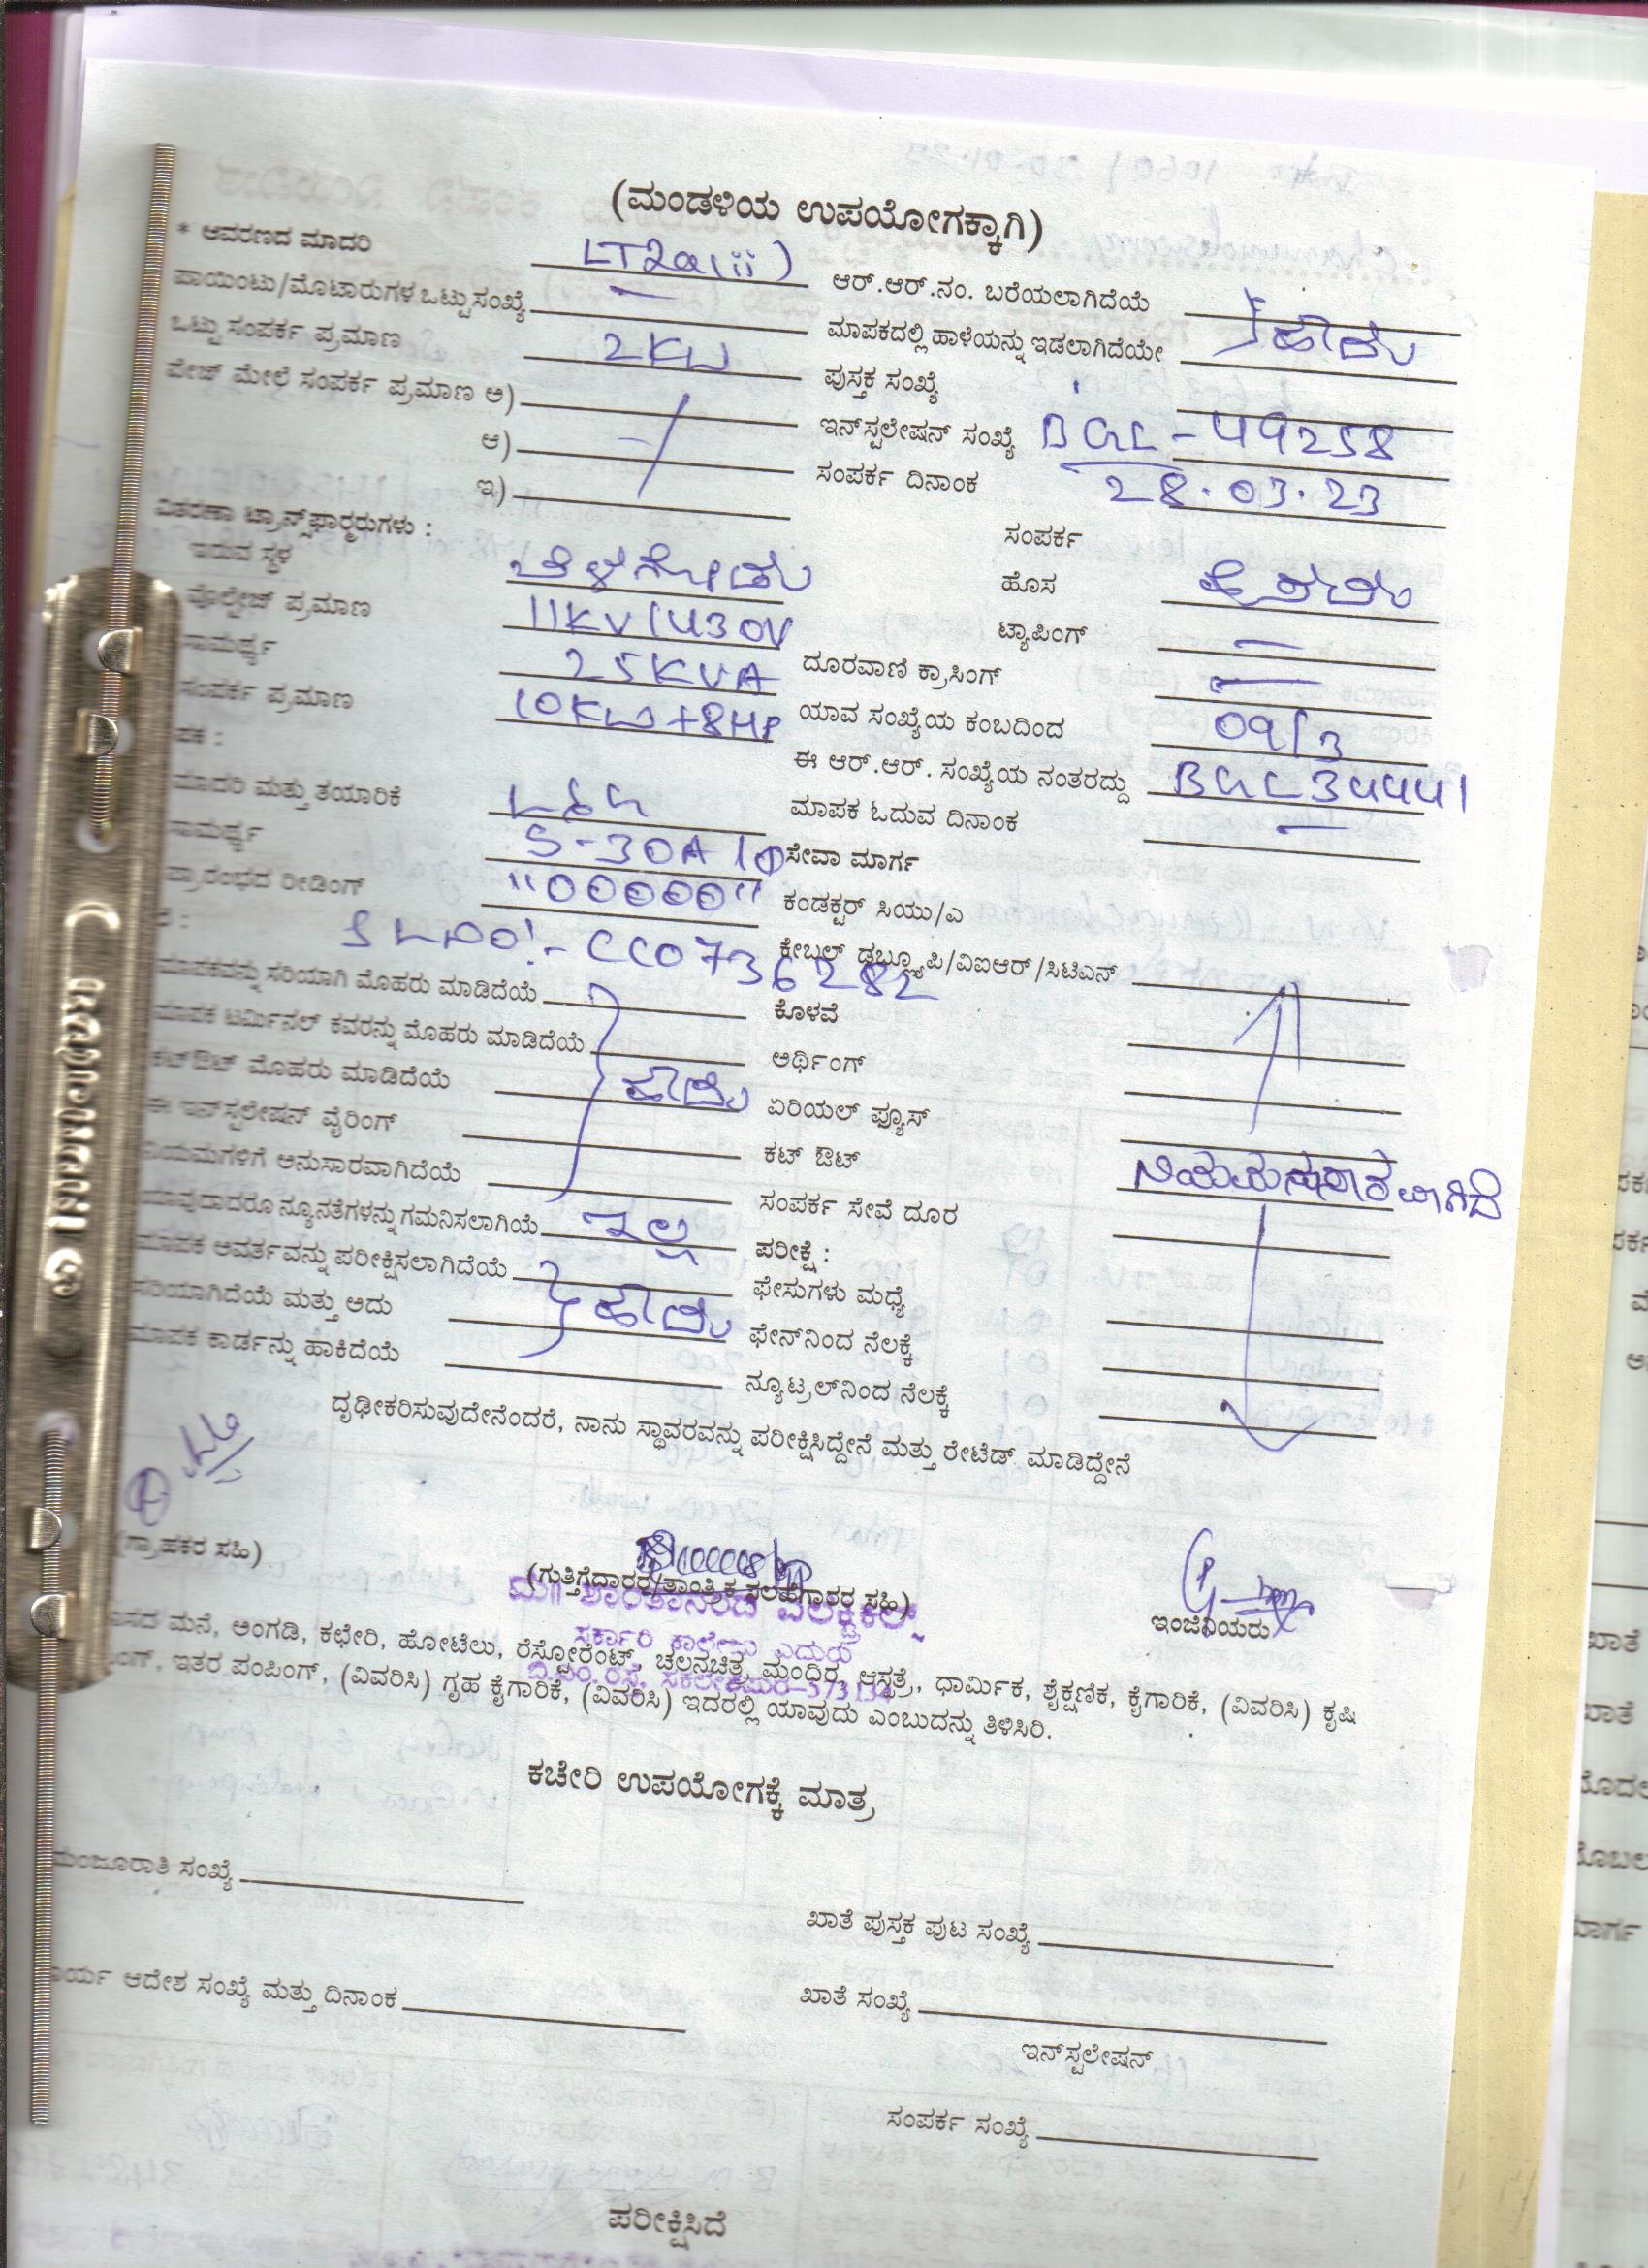 (ಮಂಡಳಿಯ ಉಪಯೋಗಕ್ಕಾಗಿ)
* ಆವರಣದ ಮಾದರಿ LT2a(ii) ಆರ್.ಆರ್.ನಂ. ಬರೆಯಲಾಗಿದೆಯೆ
ಪಾಯಿಂಟು/ಮೊಟಾರುಗಳ ಒಟ್ಟುಸಂಖ್ಯೆ — ಮಾಪಕದಲ್ಲಿ ಹಾಳೆಯನ್ನು ಇಡಲಾಗಿದೆಯೇ ಹೌದು
ಒಟ್ಟು ಸಂಪರ್ಕ ಪ್ರಮಾಣ 2KW ಪುಸ್ತಕ ಸಂಖ್ಯೆ
ಪೇಜ್ ಮೇಲೆ ಸಂಪರ್ಕ ಪ್ರಮಾಣ ಅ) ಇನ್‌ಸ್ಟಲೇಷನ್ ಸಂಖ್ಯೆ BGL-49258
ಆ) ಸಂಪರ್ಕ ದಿನಾಂಕ 28.03.23
ಇ)
ವಿತರಣಾ ಟ್ರಾನ್ಸ್‌ಫಾರ್ಮರುಗಳು : ಸಂಪರ್ಕ
ಇರುವ ಸ್ಥಳ ಬೆಳಗೋಡು ಹೊಸ
ವೊಲ್ಟೇಜ್ ಪ್ರಮಾಣ 11KV/430V ಟ್ಯಾಪಿಂಗ್ —
ಸಾಮರ್ಥ್ಯ 25KVA ದೂರವಾಣಿ ಕ್ರಾಸಿಂಗ್ —
ಸಂಪರ್ಕ ಪ್ರಮಾಣ 10KW+8HP ಯಾವ ಸಂಖ್ಯೆಯ ಕಂಬದಿಂದ 09/3
ಪಕ : ಈ ಆರ್.ಆರ್. ಸಂಖ್ಯೆಯ ನಂತರದ್ದು BGL34441
ಮಾದರಿ ಮತ್ತು ತಯಾರಿಕೆ L&G ಮಾಪಕ ಓದುವ ದಿನಾಂಕ —
ಸಾಮರ್ಥ್ಯ 5-30A 1Φ ಸೇವಾ ಮಾರ್ಗ
ಪ್ರಾರಂಭದ ರೀಡಿಂಗ್ "00000" ಕಂಡಕ್ಟರ್ ಸಿಯು/ಎ
SLNO:- CC0736282 ಕೇಬಲ್ ಡಬ್ಲ್ಯೂಪಿ/ವಿಐಆರ್/ಸಿಟಿಎಸ್
ಮಾಪಕವನ್ನು ಸರಿಯಾಗಿ ಮೊಹರು ಮಾಡಿದೆಯೆ ಕೊಳವೆ
ಮಾಪಕ ಟರ್ಮಿನಲ್ ಕವರನ್ನು ಮೊಹರು ಮಾಡಿದೆಯೆ ಅರ್ಥಿಂಗ್
ಕಟ್‌ಔಟ್ ಮೊಹರು ಮಾಡಿದೆಯೆ ಹೌದು ಏರಿಯಲ್ ಫ್ಯೂಸ್
ಈ ಇನ್‌ಸ್ಟಲೇಷನ್ ವೈರಿಂಗ್ ಕಟ್ ಔಟ್ ನಿಯಮನುಸಾರವಾಗಿದೆ
ನಿಯಮಗಳಿಗೆ ಅನುಸಾರವಾಗಿದೆಯೆ ಸಂಪರ್ಕ ಸೇವೆ ದೂರ
ಯಾವುದಾದರೂ ನ್ಯೂನತೆಗಳನ್ನು ಗಮನಿಸಲಾಗಿಯೆ ಇಲ್ಲ ಪರೀಕ್ಷೆ :
ಮಾಪಕ ಆವರ್ತವನ್ನು ಪರೀಕ್ಷಿಸಲಾಗಿದೆಯೆ ಫೇಸುಗಳು ಮಧ್ಯೆ
ಸರಿಯಾಗಿದೆಯೆ ಮತ್ತು ಅದು ಹೌದು ಫೇಸ್‌ನಿಂದ ನೆಲಕ್ಕೆ
ಮಾಪಕ ಕಾರ್ಡನ್ನು ಹಾಕಿದೆಯೆ ನ್ಯೂಟ್ರಲ್‌ನಿಂದ ನೆಲಕ್ಕೆ
ದೃಢೀಕರಿಸುವುದೇನೆಂದರೆ, ನಾನು ಸ್ಥಾವರವನ್ನು ಪರೀಕ್ಷಿಸಿದ್ದೇನೆ ಮತ್ತು ರೇಟೆಡ್ ಮಾಡಿದ್ದೇನೆ
(ಗ್ರಾಹಕರ ಸಹಿ) (ಗುತ್ತಿಗೆದಾರರ/ತಾಂತ್ರಿಕ ಸಲಹೆಗಾರರ ಸಹಿ) ಇಂಜಿನಿಯರು
ಮೆ|| ಶಾಂತಾನಂದ ಎಲೆಕ್ಟ್ರಿಕಲ್ಸ್
ಸರ್ಕಾರಿ ಕಾಲೇಜು ಎದುರು
ಬಿ.ಎಂ. ರಸ್ತೆ, ಸಕಲೇಶಪುರ-573134
ಸದ ಮನೆ, ಅಂಗಡಿ, ಕಛೇರಿ, ಹೋಟೆಲು, ರೆಸ್ಟೋರೆಂಟ್, ಚಲನಚಿತ್ರ, ಮಂದಿರ, ಆಸ್ಪತ್ರೆ, ಧಾರ್ಮಿಕ, ಶೈಕ್ಷಣಿಕ, ಕೈಗಾರಿಕೆ, (ವಿವರಿಸಿ) ಕೃಷಿ
ಂಗ್, ಇತರ ಪಂಪಿಂಗ್, (ವಿವರಿಸಿ) ಗೃಹ ಕೈಗಾರಿಕೆ, (ವಿವರಿಸಿ) ಇದರಲ್ಲಿ ಯಾವುದು ಎಂಬುದನ್ನು ತಿಳಿಸಿರಿ.
ಕಚೇರಿ ಉಪಯೋಗಕ್ಕೆ ಮಾತ್ರ
ಮಂಜೂರಾತಿ ಸಂಖ್ಯೆ
ಖಾತೆ ಪುಸ್ತಕ ಪುಟ ಸಂಖ್ಯೆ
ಾರ್ಯ ಆದೇಶ ಸಂಖ್ಯೆ ಮತ್ತು ದಿನಾಂಕ ಖಾತೆ ಸಂಖ್ಯೆ
ಇನ್‌ಸ್ಟಲೇಷನ್
ಸಂಪರ್ಕ ಸಂಖ್ಯೆ
ಪರೀಕ್ಷಿಸಿದೆ